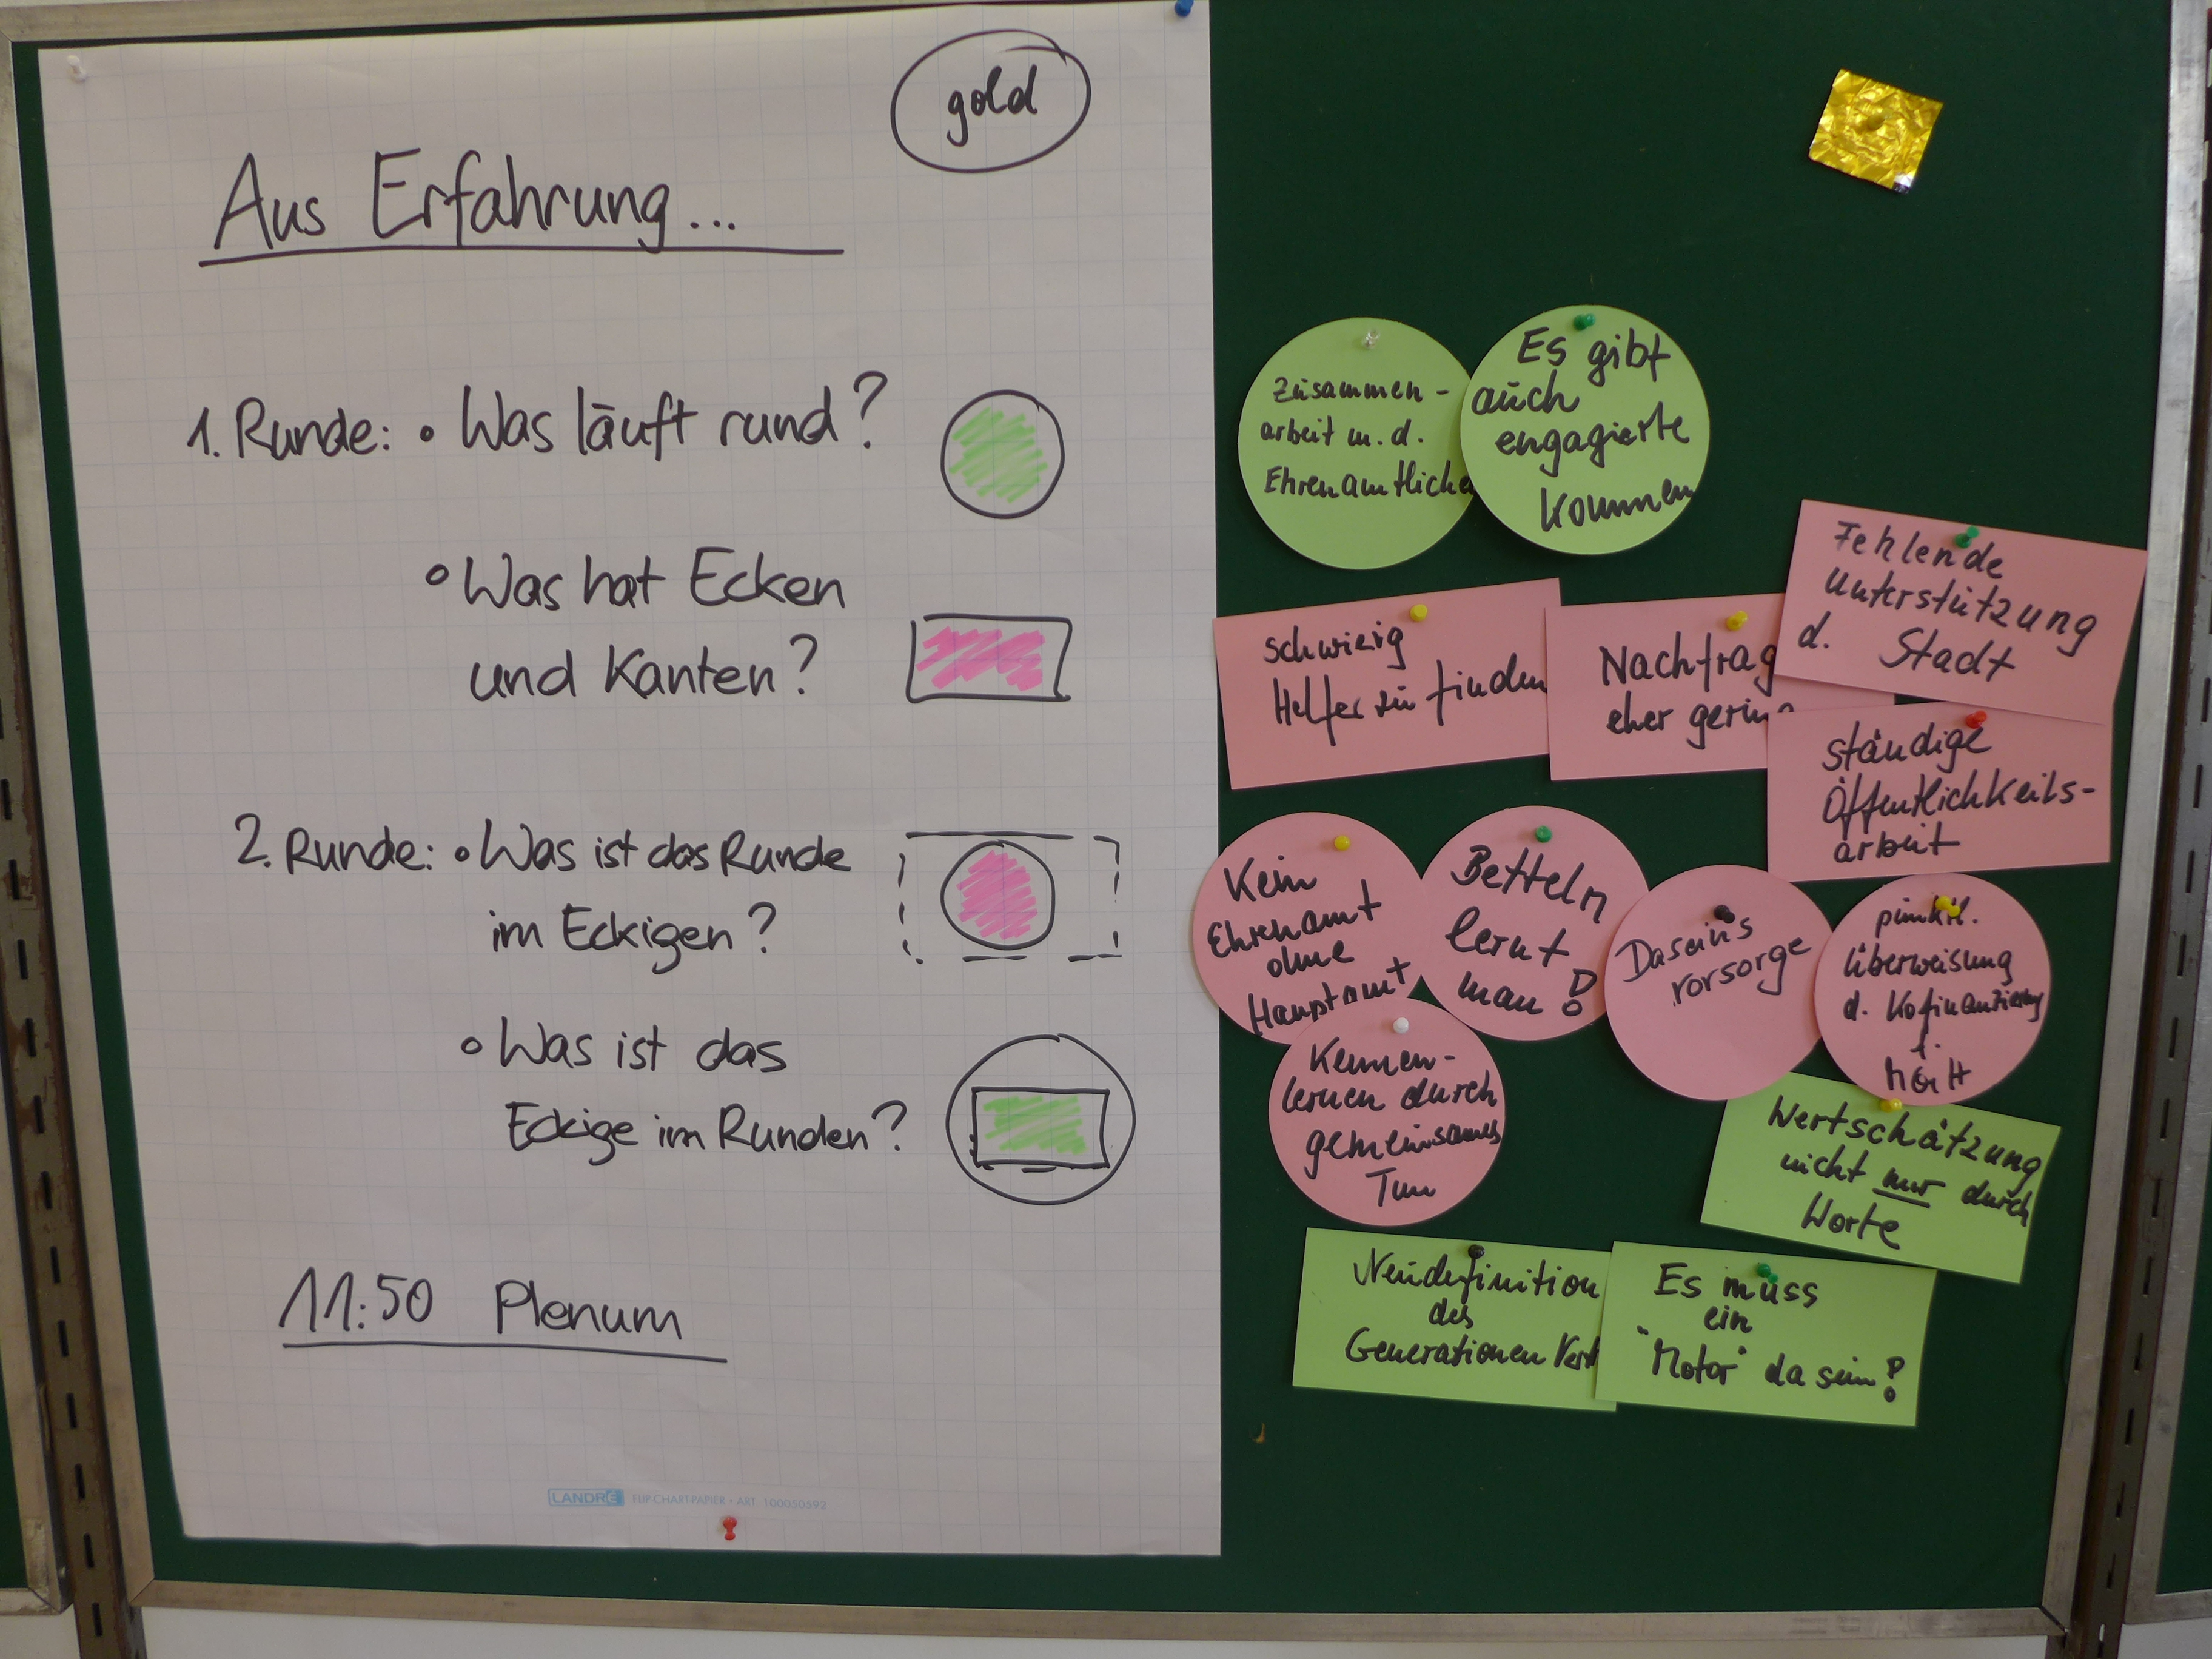 gold
Aus Erfahrung...
1. Runde: • Was läuft rund?
• Was hat Ecken
und Kanten?
2. Runde: • Was ist das Runde
im Eckigen?
• Was ist das
Eckige im Runden?
11:50 Plenum
LANDRÉ FLIP-CHART-PAPIER • ART 100050592
Zusammen-
arbeit m. d.
Ehrenamtliche
Es gibt
auch
engagierte
Kommen
schwierig
Helfer zu finden
Nachfrag
eher gering
Fehlende
Unterstützung
d. Stadt
ständige
Öffentlichkeits-
arbeit
Kein
Ehrenamt
ohne
Hauptamt
Betteln
lernt
man!
Daseins
vorsorge
pünktl.
Überweisung
d. Kofinanzierung
Kennen-
lernen durch
gemeinsames
Tun
Wertschätzung
nicht nur durch
Worte
Neudefinition
des
Generationen Vert
Es muss
ein
"Motor" da sein!